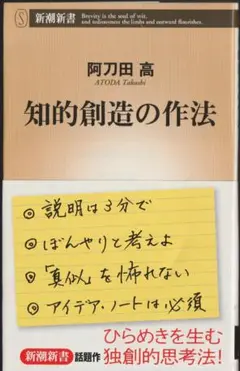 新潮新書
Brevity is the soul of wit,
and tediousness the limbs and outward flourishes.
阿刀田 高
ATODA Takashi
知的創造の作法
◎ 説明は3分で
◎ ぼんやりと考えよ
◎ 「真似」を怖れない
◎ アイデア・ノートは必須
新潮新書
話題作
ひらめきを生む
独創的思考法!